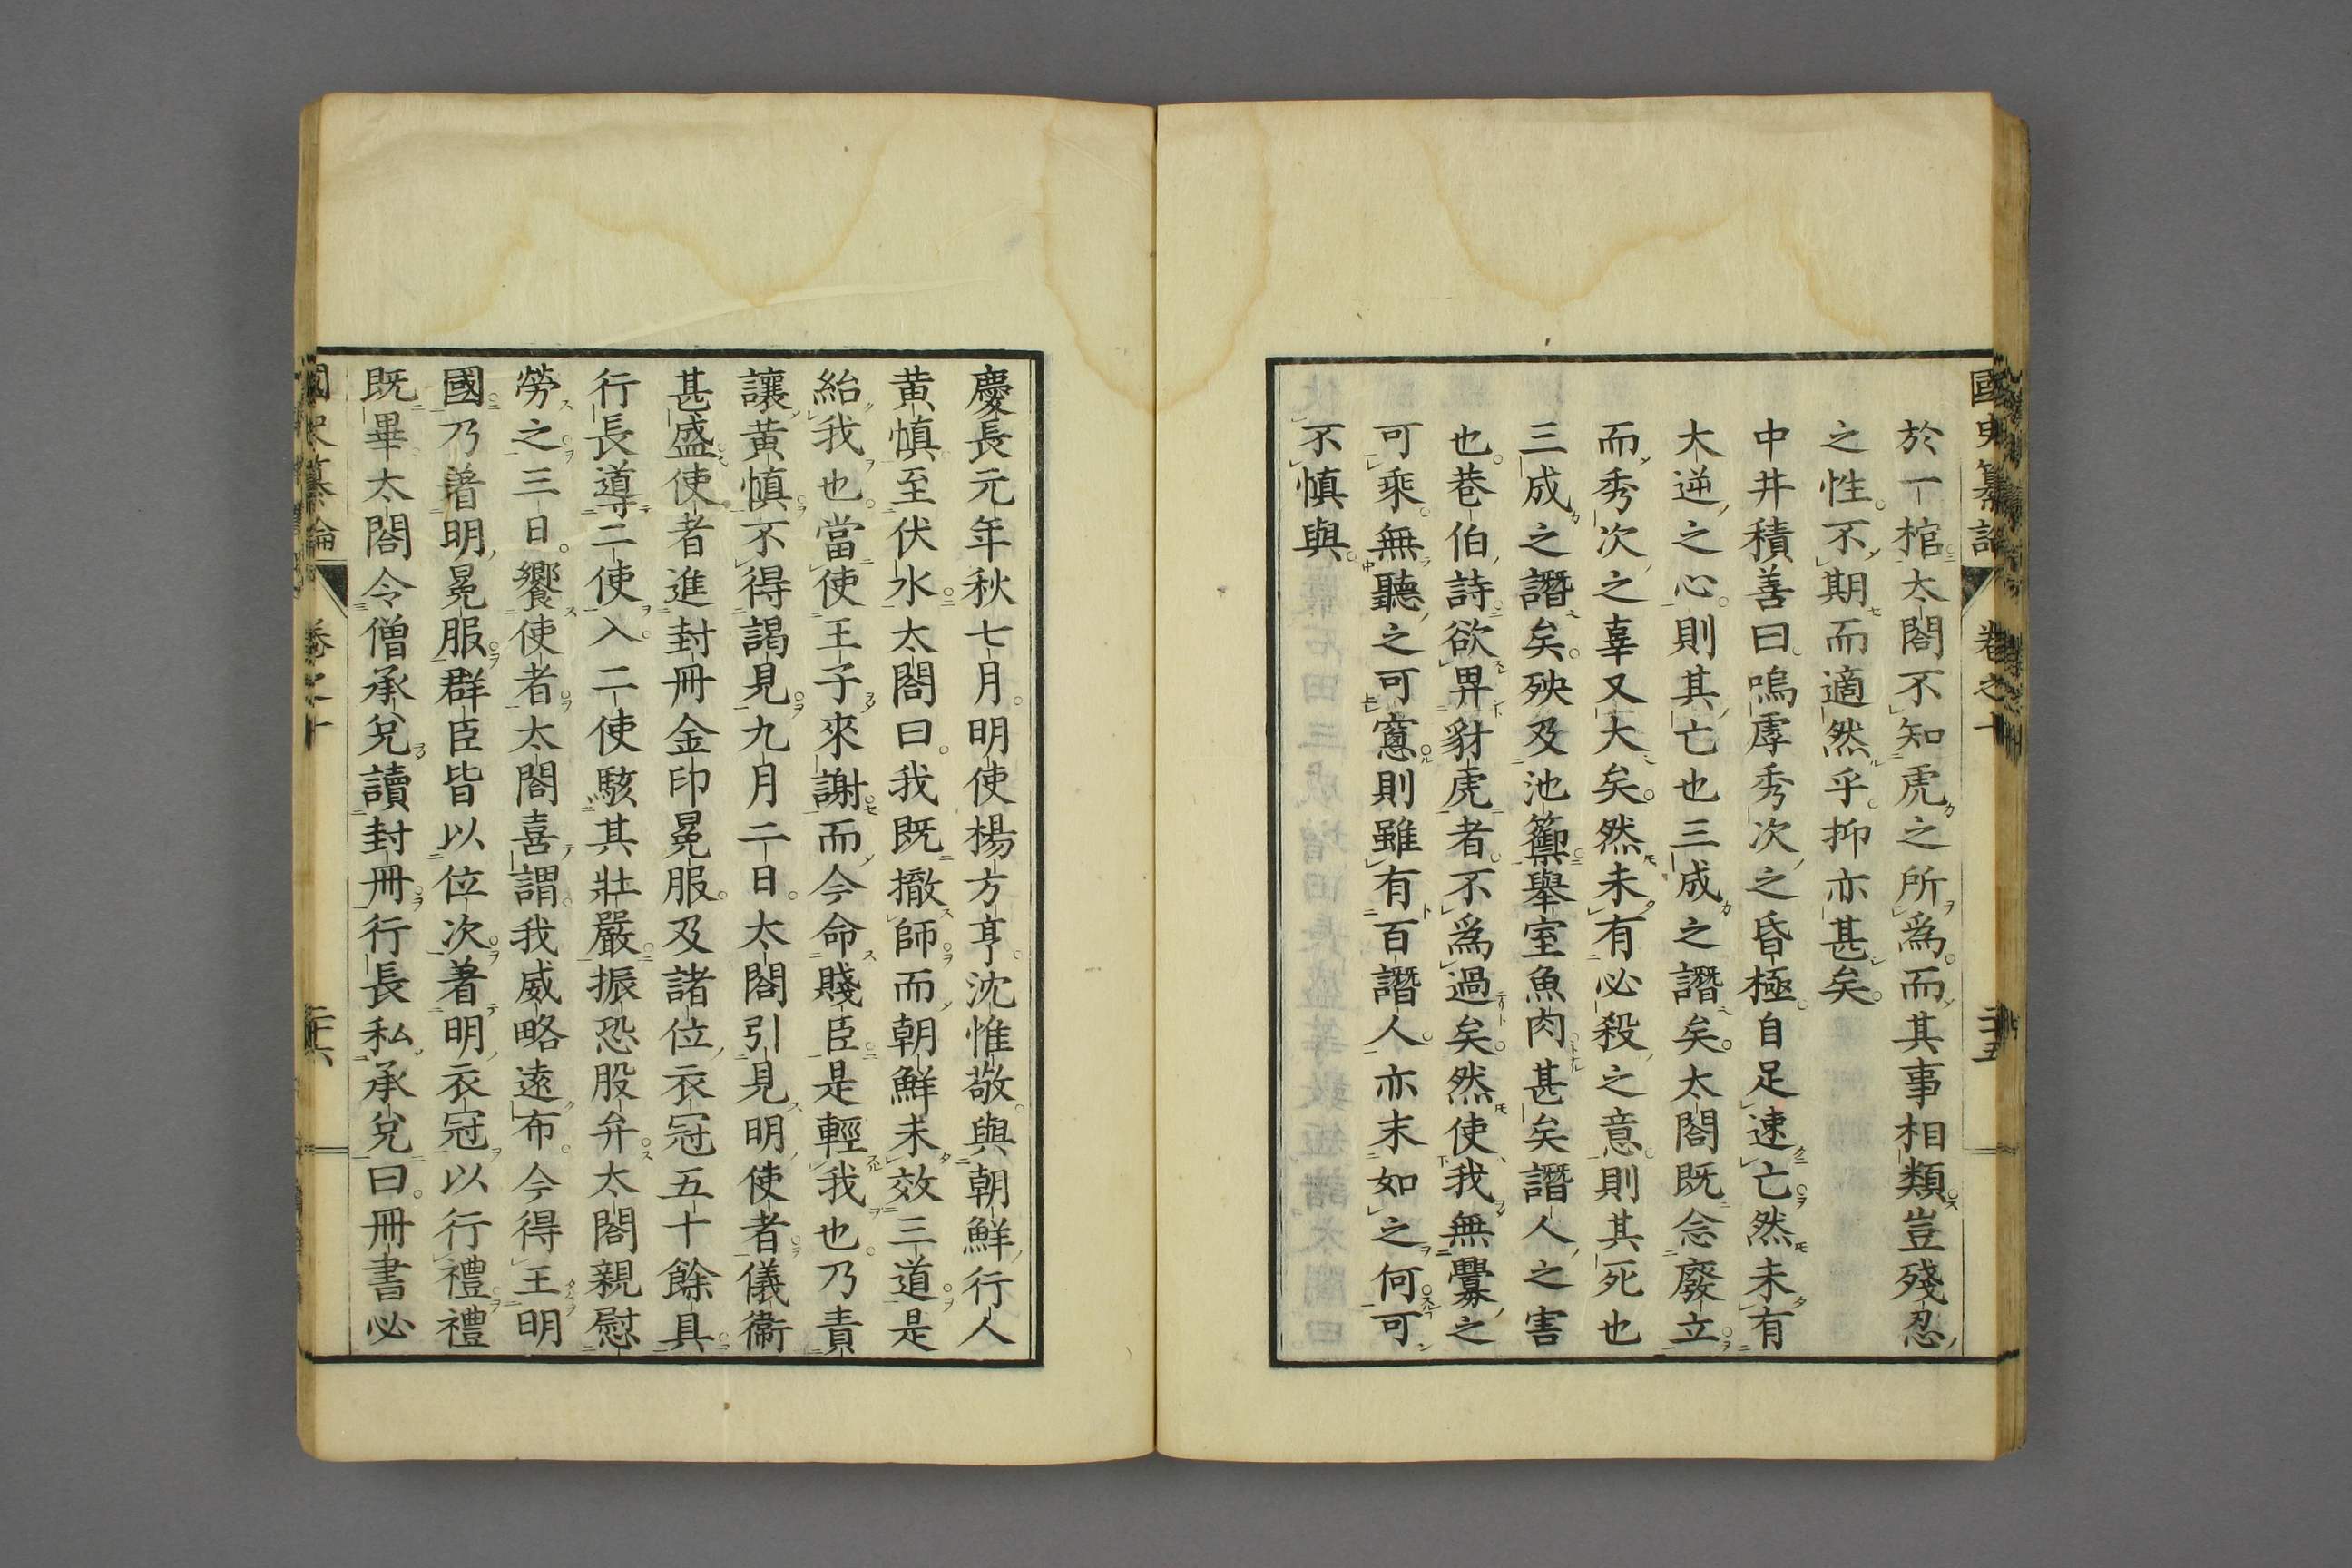 國史纂論 卷之十 二十五
於一棺太閤不知虎之所爲而其事相類豈殘忍
之性不期而適然乎抑亦甚矣
中井積善曰嗚虖秀次之昏極自足速亡然未有
大逆之心則其亡也三成之譖矣太閤既念廢立
而秀次之辜又大矣然未有必殺之意則其死也
三成之譖矣殃及池籞舉室魚肉甚矣譖人之害
也巷伯詩欲畀豺虎者不爲過矣然使我無釁之
可乘無聽之可窻則雖有百譖人亦末如之何可
不慎與
慶長元年秋七月明使楊方亨沈惟敬與朝鮮行人
黄慎至伏水太閤曰我既撤師而朝鮮未效三道是
紿我也當使王子來謝而今命賤臣是輕我也乃責
讓黄慎不得謁見九月二日太閤引見明使者儀衞
甚盛使者進封冊金印冕服及諸位衣冠五十餘具
行長導二使入二使駭其壯嚴振恐股弁太閤親慰
勞之三日饗使者太閤喜謂我威略遠布今得王明
國乃著明冕服群臣皆以位次著明衣冠以行禮禮
既畢太閤令僧承兌讀封冊行長私承兌曰冊書必
國史纂論 卷之十 二十六